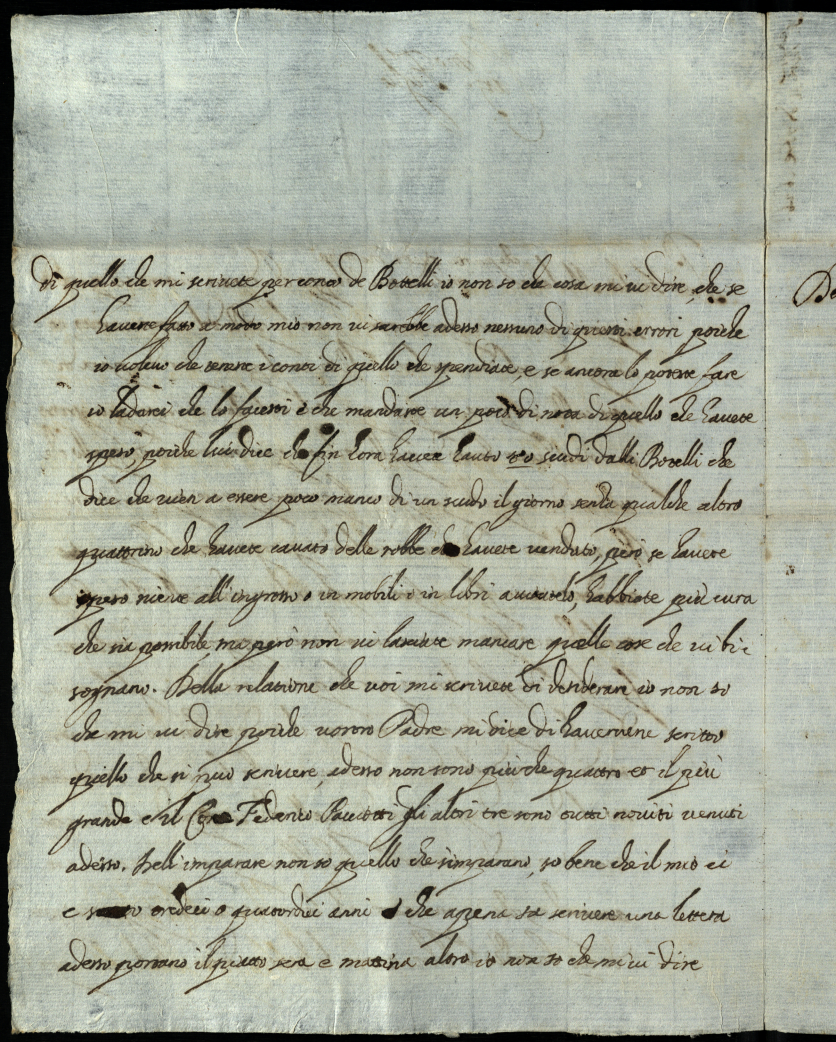 di quello che mi scrivete per conto de Bottelli io non so che cosa mi vi dire, che se
haveste fatto a modo mio non vi sarebbe adesso nessuno di questi errori poiche
io volevo che teneste i conti di quello che spendiate, e se ancora lo potete fare
io lodarei che lo facessi e che mandaste un poco di nota di quello che havete
speso, poiche lui dice che fin hora havete hauto scudi dalli Botelli che
dice che vien a essere poco manco di un scudo il giorno senza qualche altro
quattrino che havete cavato delle robbe che havete venduto, però se havete
speso niente all'ingrosso o in mobili o in libri avisatelo, habbiate più cura
che sia possibile, ma però non vi lasciate mancare quelle cose che vi bi
sognano. Della relatione che voi mi scrivete di desiderare io non so
che mi vi dire poiche vostro Padre mi dice di havervene scritto
quello che si può scrivere, adesso non sono più che quattro et il più
grande è il Federico gli altri tre sono tutti noviti venuti
adesso. Dell'imparare non so quello che s'imparano, so bene che il mio ci
e tredeci o quatordici anni che apena sa scrivere una lettera
adesso portano il piatto sera e mattina altro io non so che mi vi dire